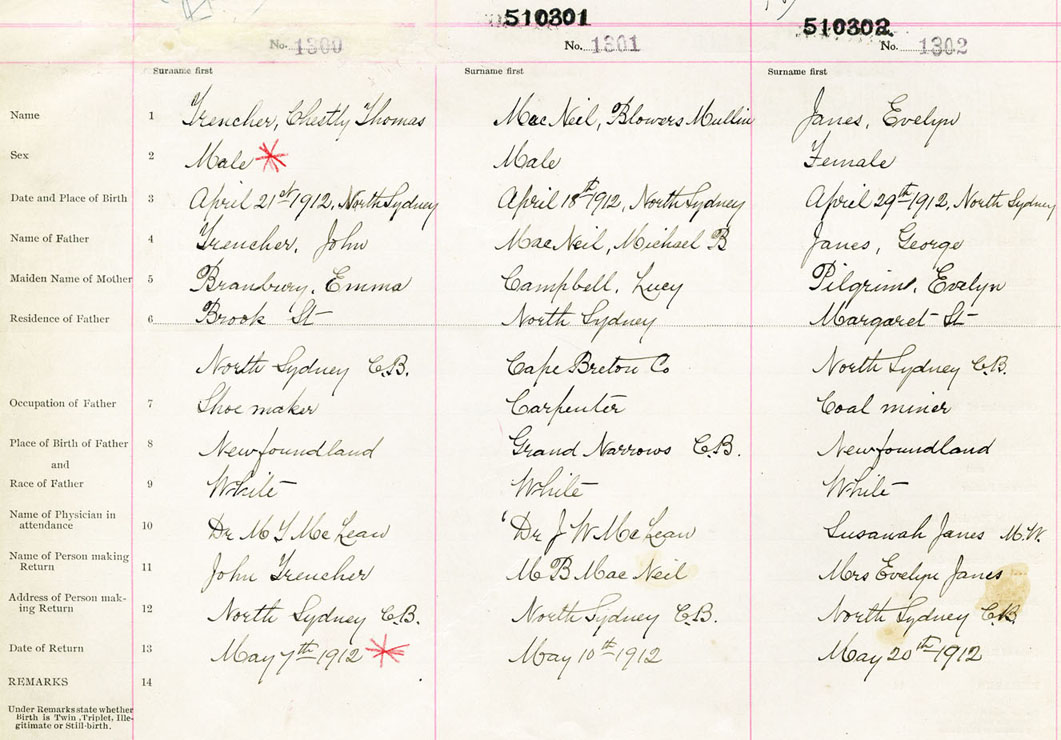 510301
510302
No. 1300 No. 1301 No. 1302
Surname first Surname first Surname first
Name 1 Trencher, Chestly Thomas MacNeil, Blowers Mullin Janes, Evelyn
Sex 2 Male Male Female
Date and Place of Birth 3 April 21st 1912, North Sydney April 18th 1912, North Sydney April 29th 1912, North Sydney
Name of Father 4 Trencher, John MacNeil, Michael B Janes, George
Maiden Name of Mother 5 Bransbury, Emma Campbell, Lucy Pilgrim, Evelyn
Residence of Father 6 Brook St North Sydney Margaret St
North Sydney C.B. Cape Breton Co North Sydney C.B.
Occupation of Father 7 Shoe maker Carpenter Coal miner
Place of Birth of Father 8 Newfoundland Grand Narrows C.B. Newfoundland
and
Race of Father 9 White White White
Name of Physician in
attendance 10 Dr M T McLean Dr J W McLean Susanah Janes M.W.
Name of Person making
Return 11 John Trencher M B MacNeil Mrs Evelyn Janes
Address of Person mak-
ing Return 12 North Sydney C.B. North Sydney C.B. North Sydney C.B.
Date of Return 13 May 7th 1912 May 10th 1912 May 20th 1912
REMARKS 14
Under Remarks state whether
Birth is Twin, Triplet, Ille-
gitimate or Still-birth.